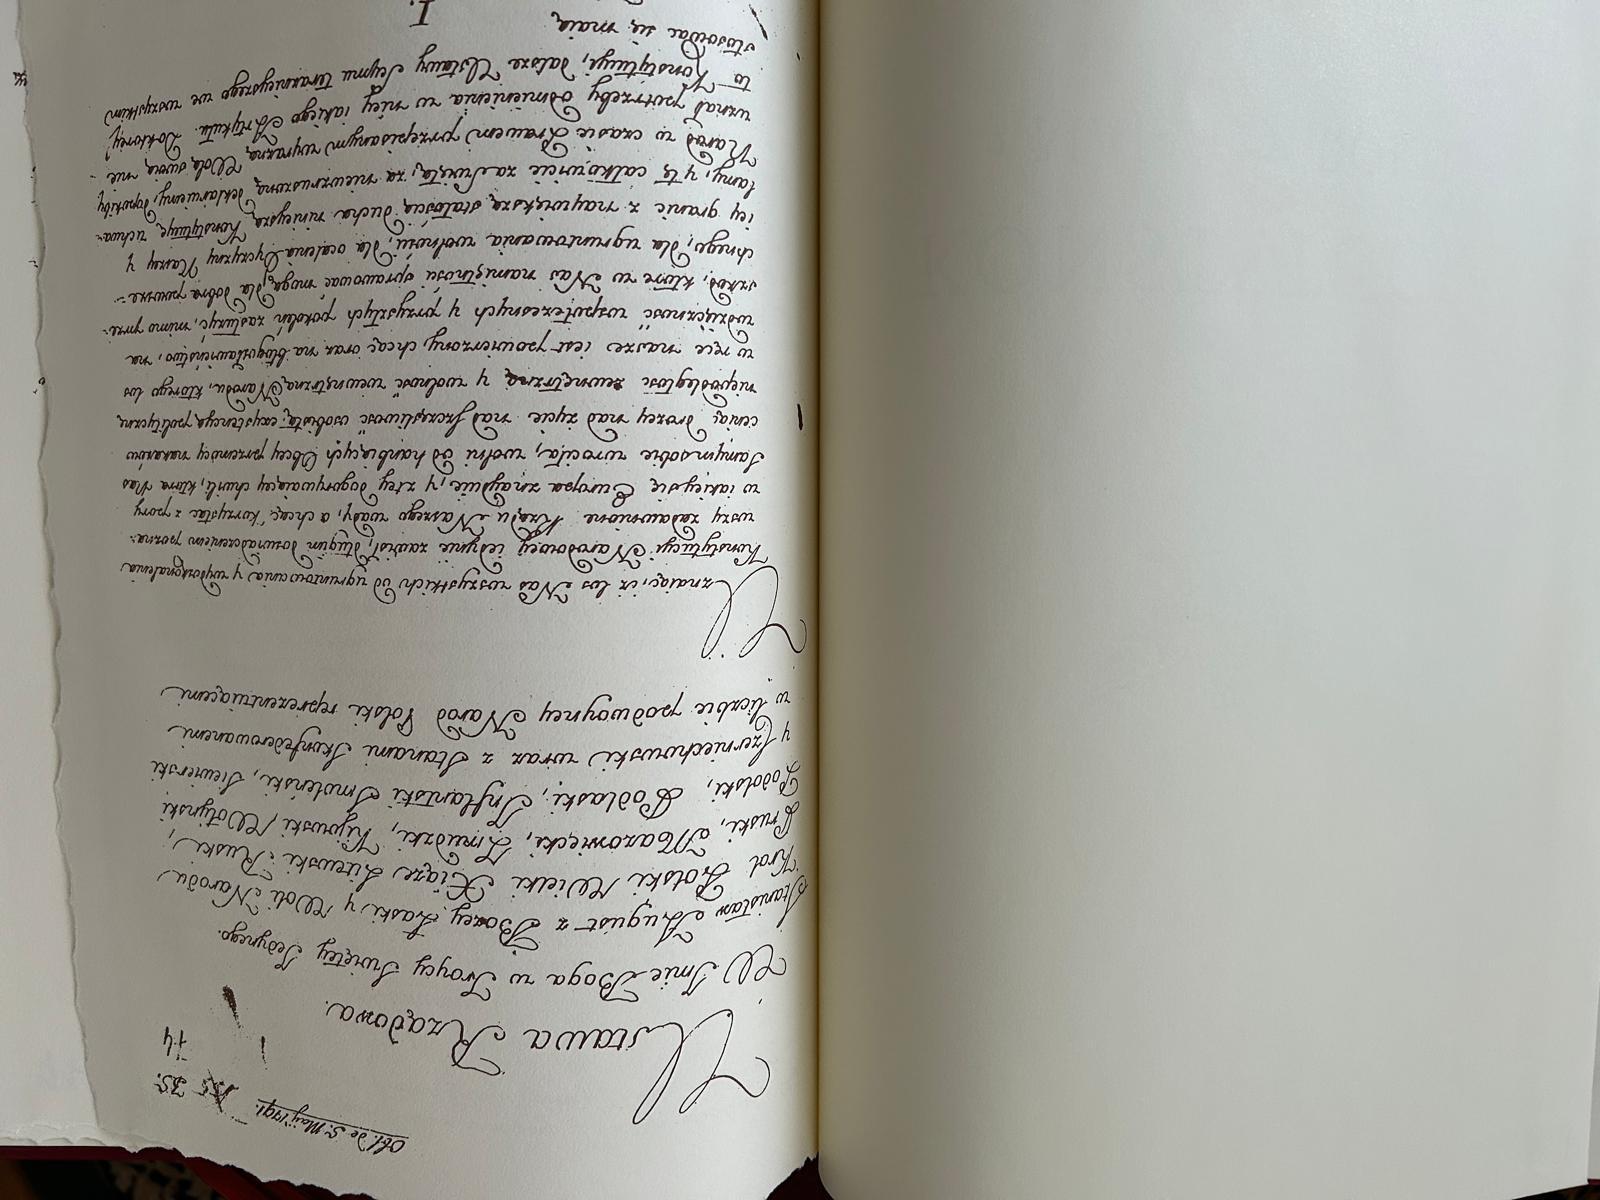 Obl. de 5. Maij 1791.
35.
74
Ustawa Rządowa.
W Imie Boga w Troycy Swiętey Jedynego.
Stanisław August z Bożey Łaski y Woli Narodu
Krol Polski Wielki Xiąże Litewski Ruski,
Pruski, Mazowięcki, Zmudzki, Kijowski, Wołyński
Podolski, Podlaski, Inflantski Smoleński, Siewierski
y Czerniechowski wraz z Stanami Skonfederowanemi
w liczbie podwoyney Narod Polski reprezentuiącemi.
Uznaiąc, iż los Nas wszystkich od ugruntowania y wydoskonalenia
Konstytucyi Narodowey iedynie zawisł, długim doswiadczeniem pozna-
wszy zadawnione Rządu Naszego wady, a chcąc korzystać z pory
w iakiey się Europa znayduie, y z tey dogorywaiącey chwili, ktora Nas
samym sobie wrociła, wolni od hańbiących obcey przemocy nakazów
ceniąc drożey nad życie nad szczęśliwość osobistą, exystencyą polityczną
niepodległość zewnętrzną y wolność wewnętrzną Narodu, ktorego los
w ręce nasze iest powierzony, chcąc oraz na błogosławieństwo, na
wdzięczność wspołczesnych y przyszłych pokoleń zasłużyć, mimo prze-
szkod, ktore w Nas namiętności sprawować mogą, dla dobra powsze-
chnego, dla ugruntowania wolności, dla ocalenia Oyczyzny Naszey y
iey granic z naywiększą stałością ducha ninieyszą Konstytucyę uchwa-
lamy, y tę całkowicie za świętą, za niewzruszoną deklaruiemy, dopokiby
Narod w czasie Prawem przepisanym wyraźną Wolą swoią nie
uznał potrzeby odmienienia w niey iakiego Artykułu. Do ktorey
to Konstytucyi, dalsze Ustawy Seymu teraznieyszego we wszystkim
stosować się maią
I.